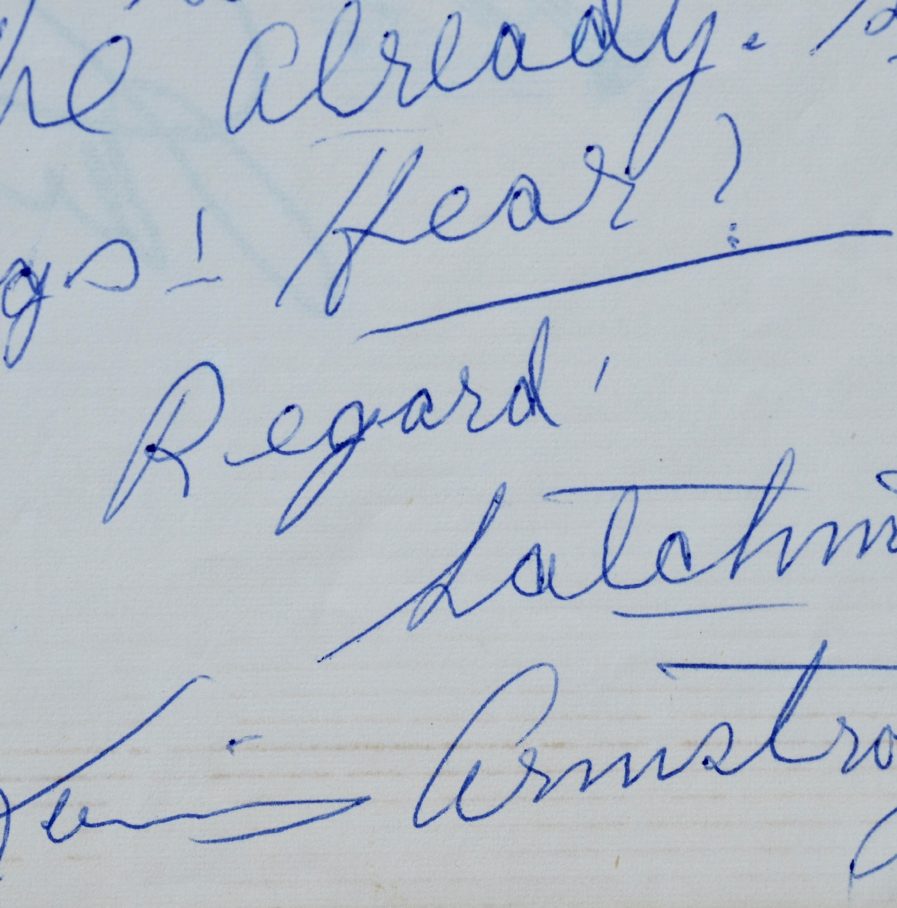 he already.
gs! Hear?
Regard'
Satchm
Louis Armstro